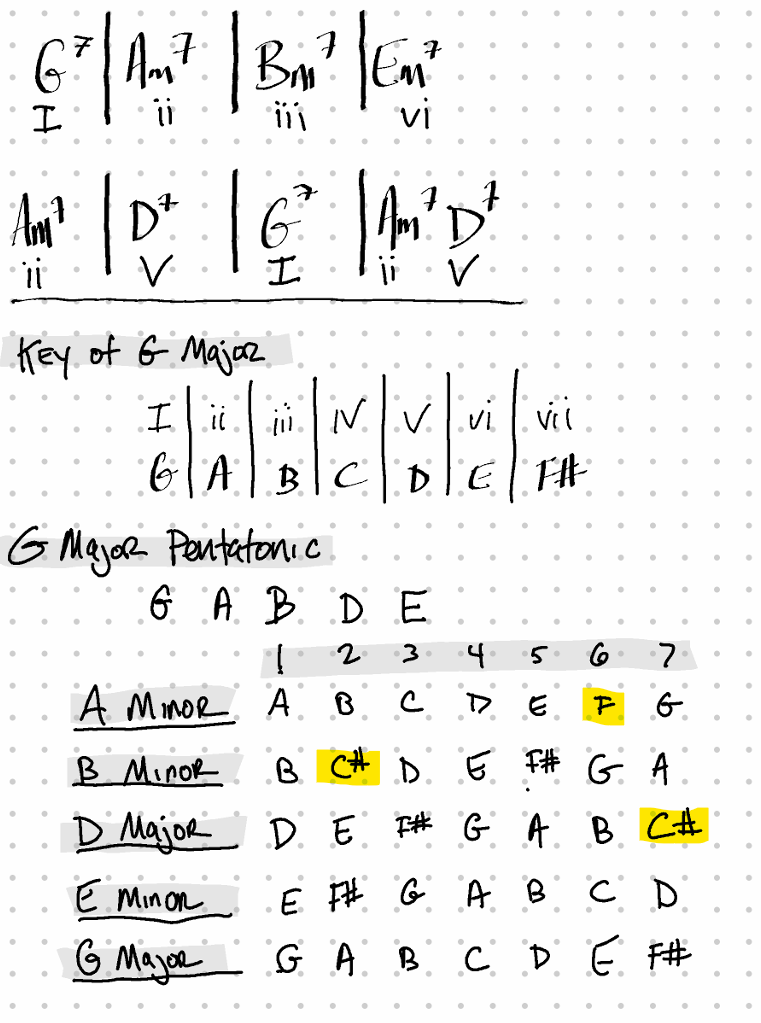 G7 | Am7 | Bm7 | Em7
I ii iii vi
Am7 | D7 | G7 | Am7 D7
ii V I ii V
Key of G Major
I | ii | iii | IV | V | vi | vii
G | A | B | C | D | E | F#
G Major Pentatonic
G A B D E
1 2 3 4 5 6 7
A Minor A B C D E F G
B Minor B C# D E F# G A
D Major D E F# G A B C#
E Minor E F# G A B C D
G Major G A B C D E F#